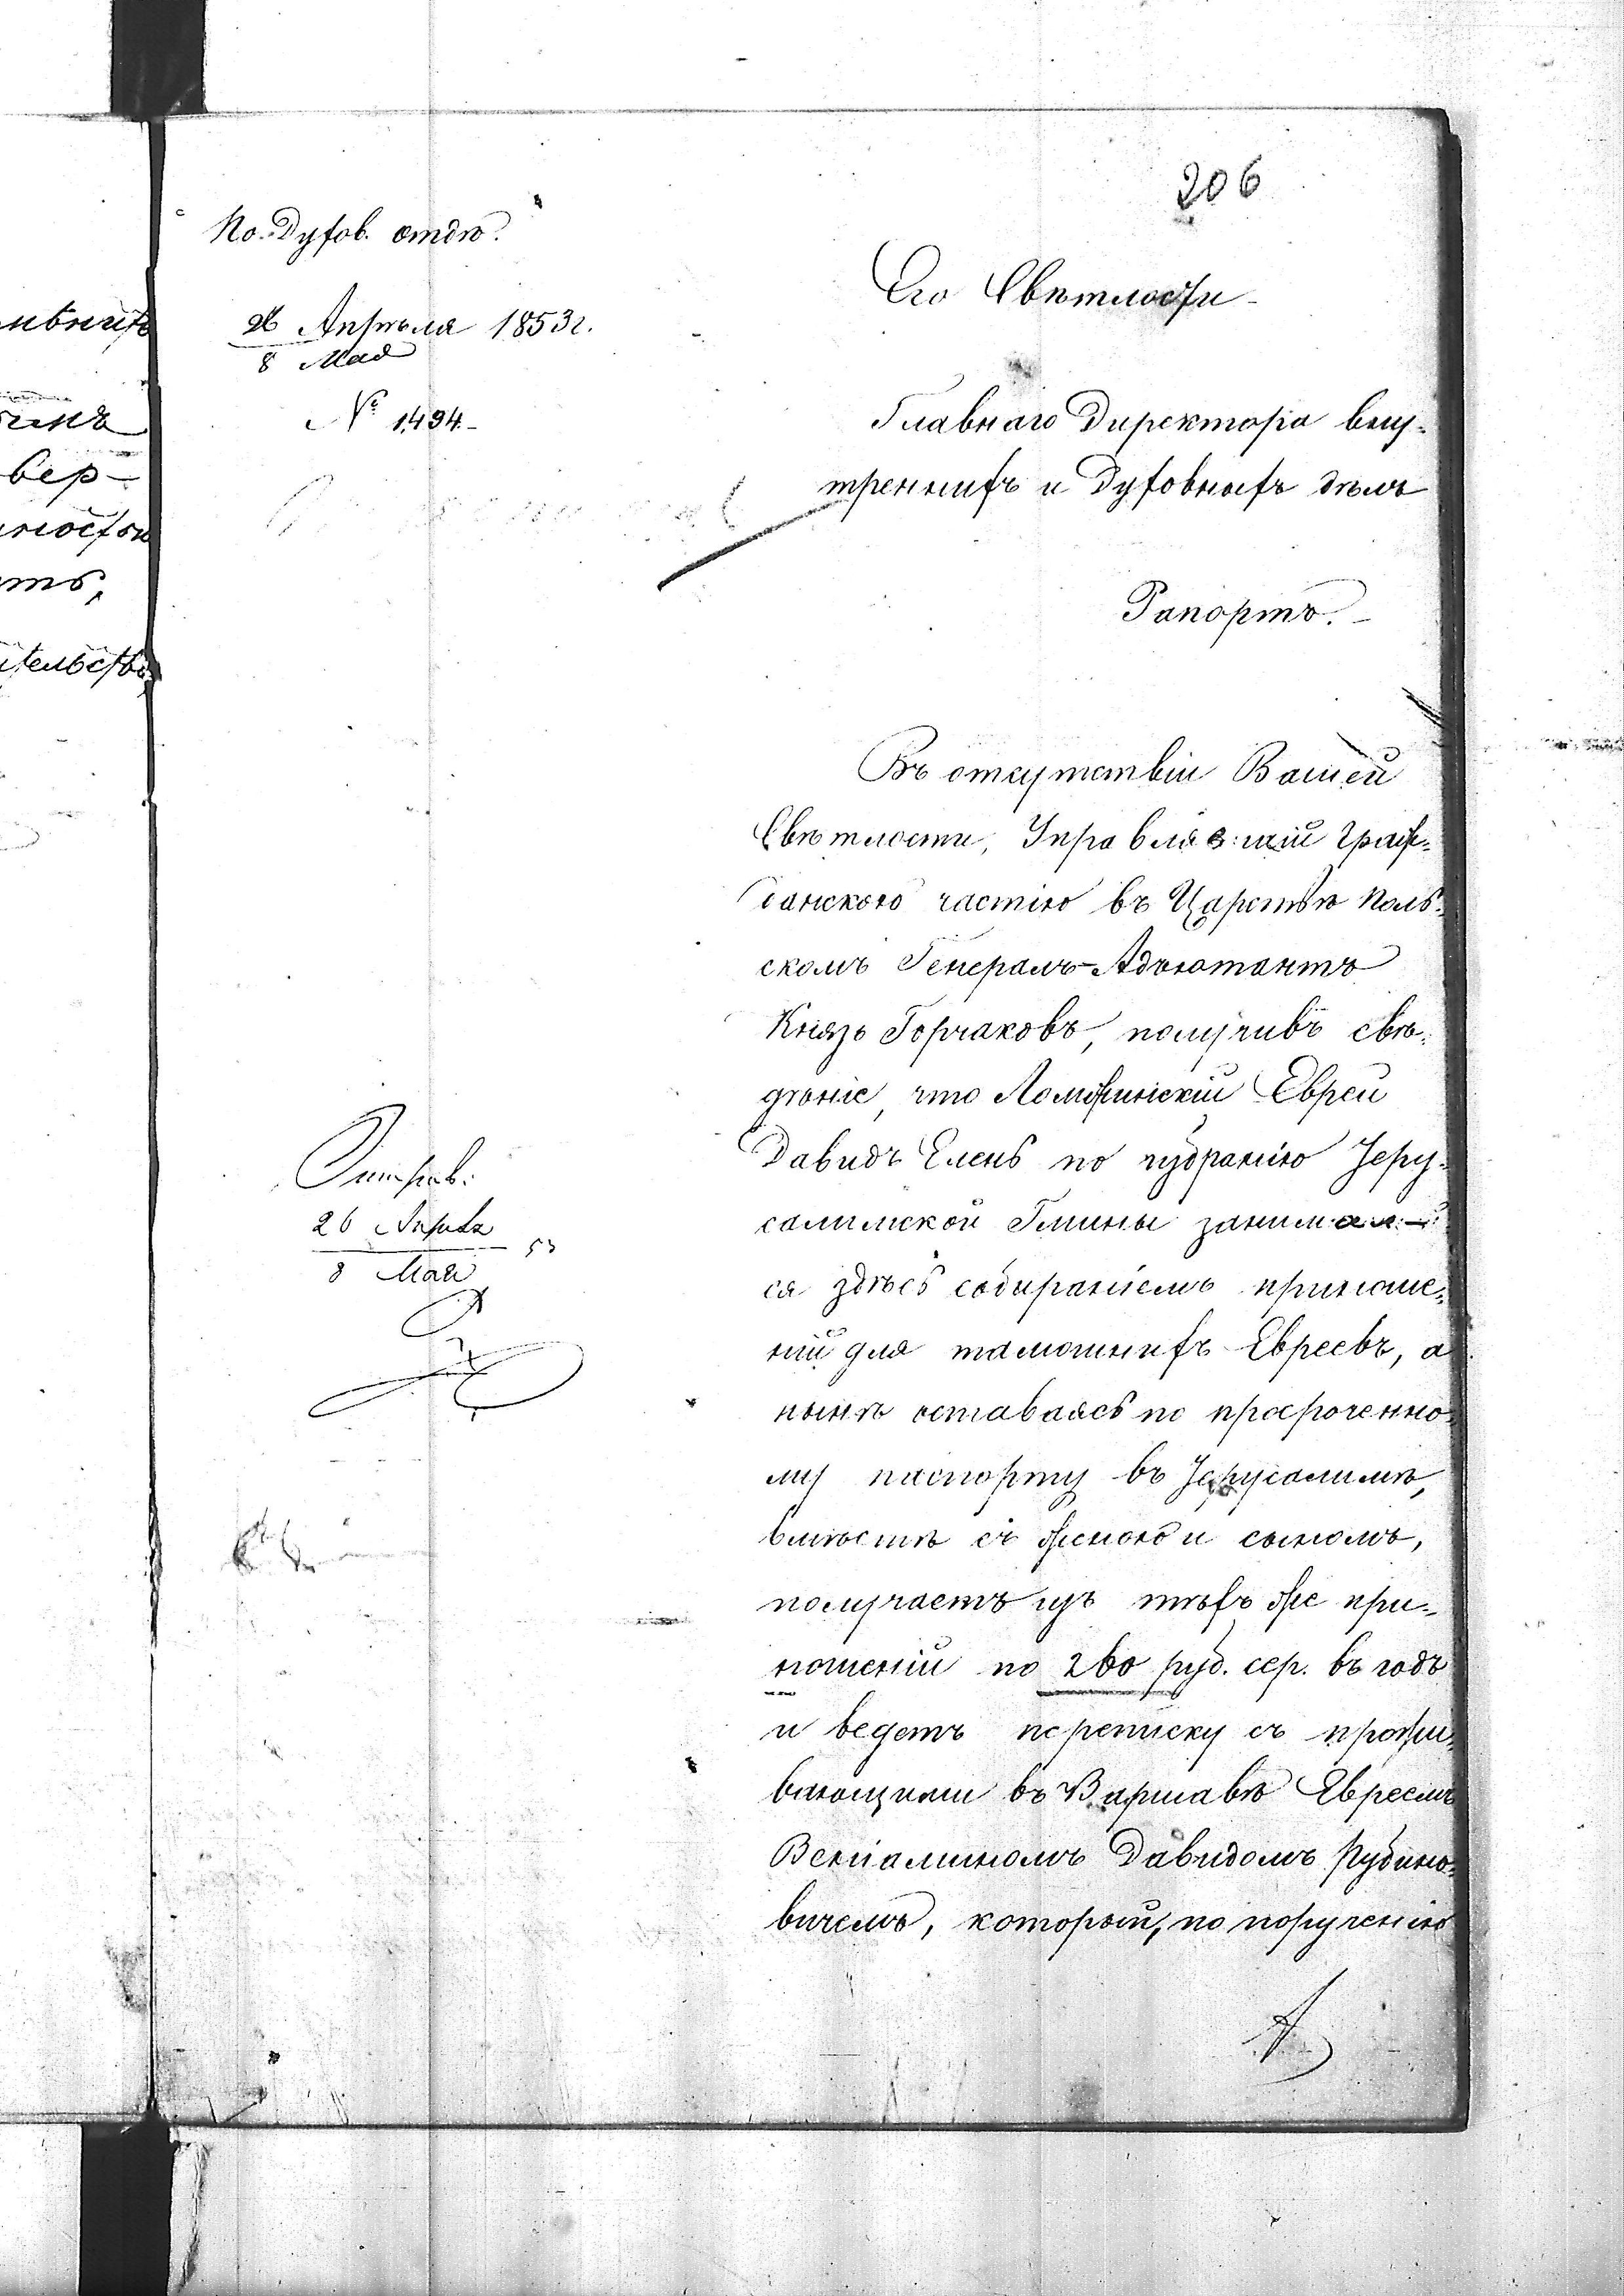 206
По Духов. отдѣ.
26 Апрѣля 1853 г.
8 Мая
№ 1,494.
Его Свѣтлости
Главнаго Директора вну-
треннихъ и Духовныхъ дѣлъ
Рапортъ.
Въ отсутствіи Вашей
Свѣтлости, Управлявшій граж-
данскою частію въ Царствѣ Поль-
скомъ Генералъ-Адъютантъ
Князь Горчаковъ, получивъ свѣ-
дѣніе, что Ломжинскій Еврей
Давидъ Елень по избранію Іеру-
салимской Гмины занимал-
ся здѣсь собираніемъ приноше-
ній для тамошнихъ Евреевъ, а
нынѣ оставаясь по просроченно-
му паспорту въ Іерусалимѣ,
вмѣстѣ съ женою и сыномъ,
получаетъ изъ тѣхъ же при-
ношеній по 260 руб. сер. въ годъ
и ведетъ переписку съ прожи-
вающими въ Варшавѣ Евреемъ
Веніаминомъ Давидомъ Рубино-
вичемъ, который, по порученію
Отправ.
26 Апрѣля
8 Мая
53
вер-
ть,